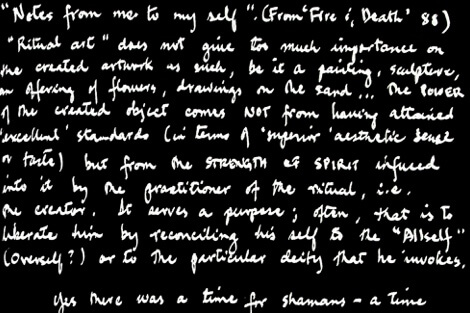 "Notes from me to my self". (From 'Fire & Death' 88)
"Ritual art" does not give too much importance on
the created artwork as such, be it a painting, sculpture,
an offering of flowers, drawings on the sand... The POWER
of the created object comes NOT from having attained
'excellent' standards (in terms of 'superior' aesthetic sense
or taste) but from the STRENGTH OF SPIRIT infused
into it by the practitioner of the ritual, i.e.
the creator. It serves a purpose; often, that is to
liberate him by reconciling his self to the "Allself"
(Overself?) or to the particular deity that he invokes.
Yes there was a time for shamans - a time